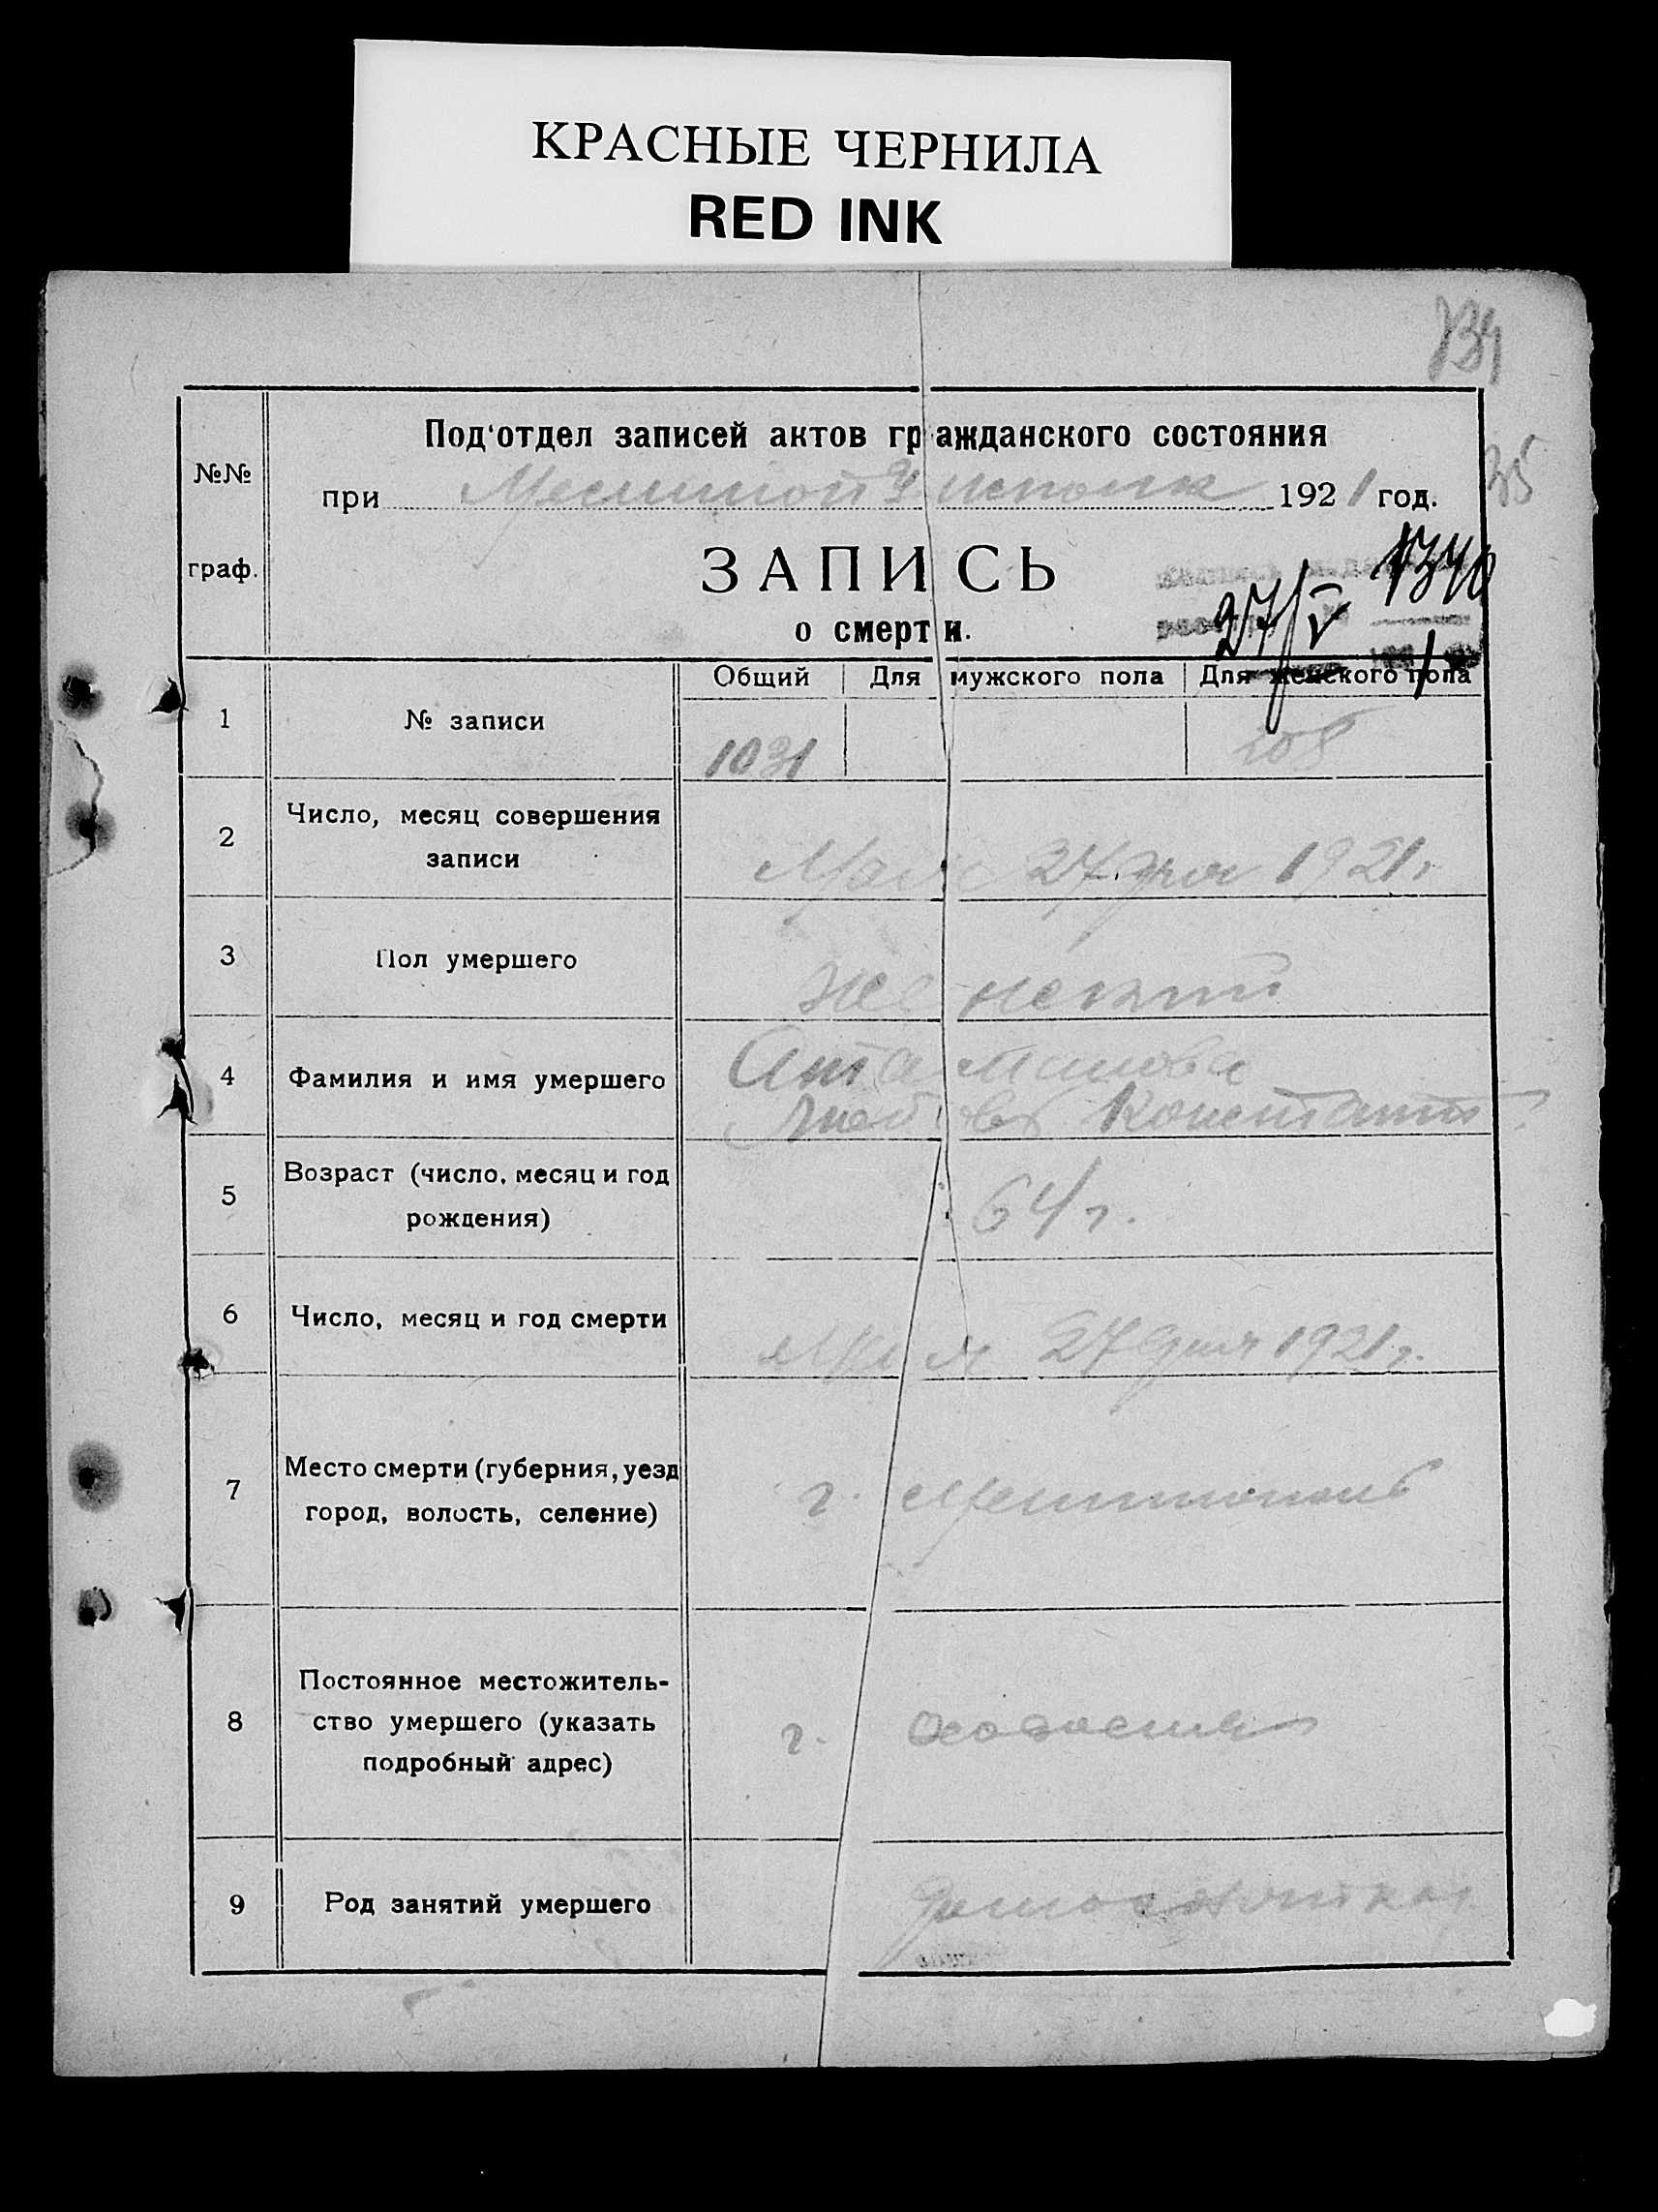 КРАСНЫЕ ЧЕРНИЛА
RED INK
Под'отдел записей актов гражданского состояния
№№
при 1921 год.
граф.
ЗАПИСЬ
1340
27/V
о смерти.
Общий Для мужского пола Для женского пола
1 № записи
1031
2 Число, месяц совершения
записи
Мая 27 дня 1921г
3 Пол умершего
Женский
4 Фамилия и имя умершего
Атаманова
Любовь Констант
5 Возраст (число, месяц и год
рождения)
64 г.
6 Число, месяц и год смерти
Мая 27 дня 1921г.
7 Место смерти (губерния, уезд
город, волость, селение)
г.
8 Постоянное местожитель-
ство умершего (указать
подробный адрес)
г.
9 Род занятий умершего